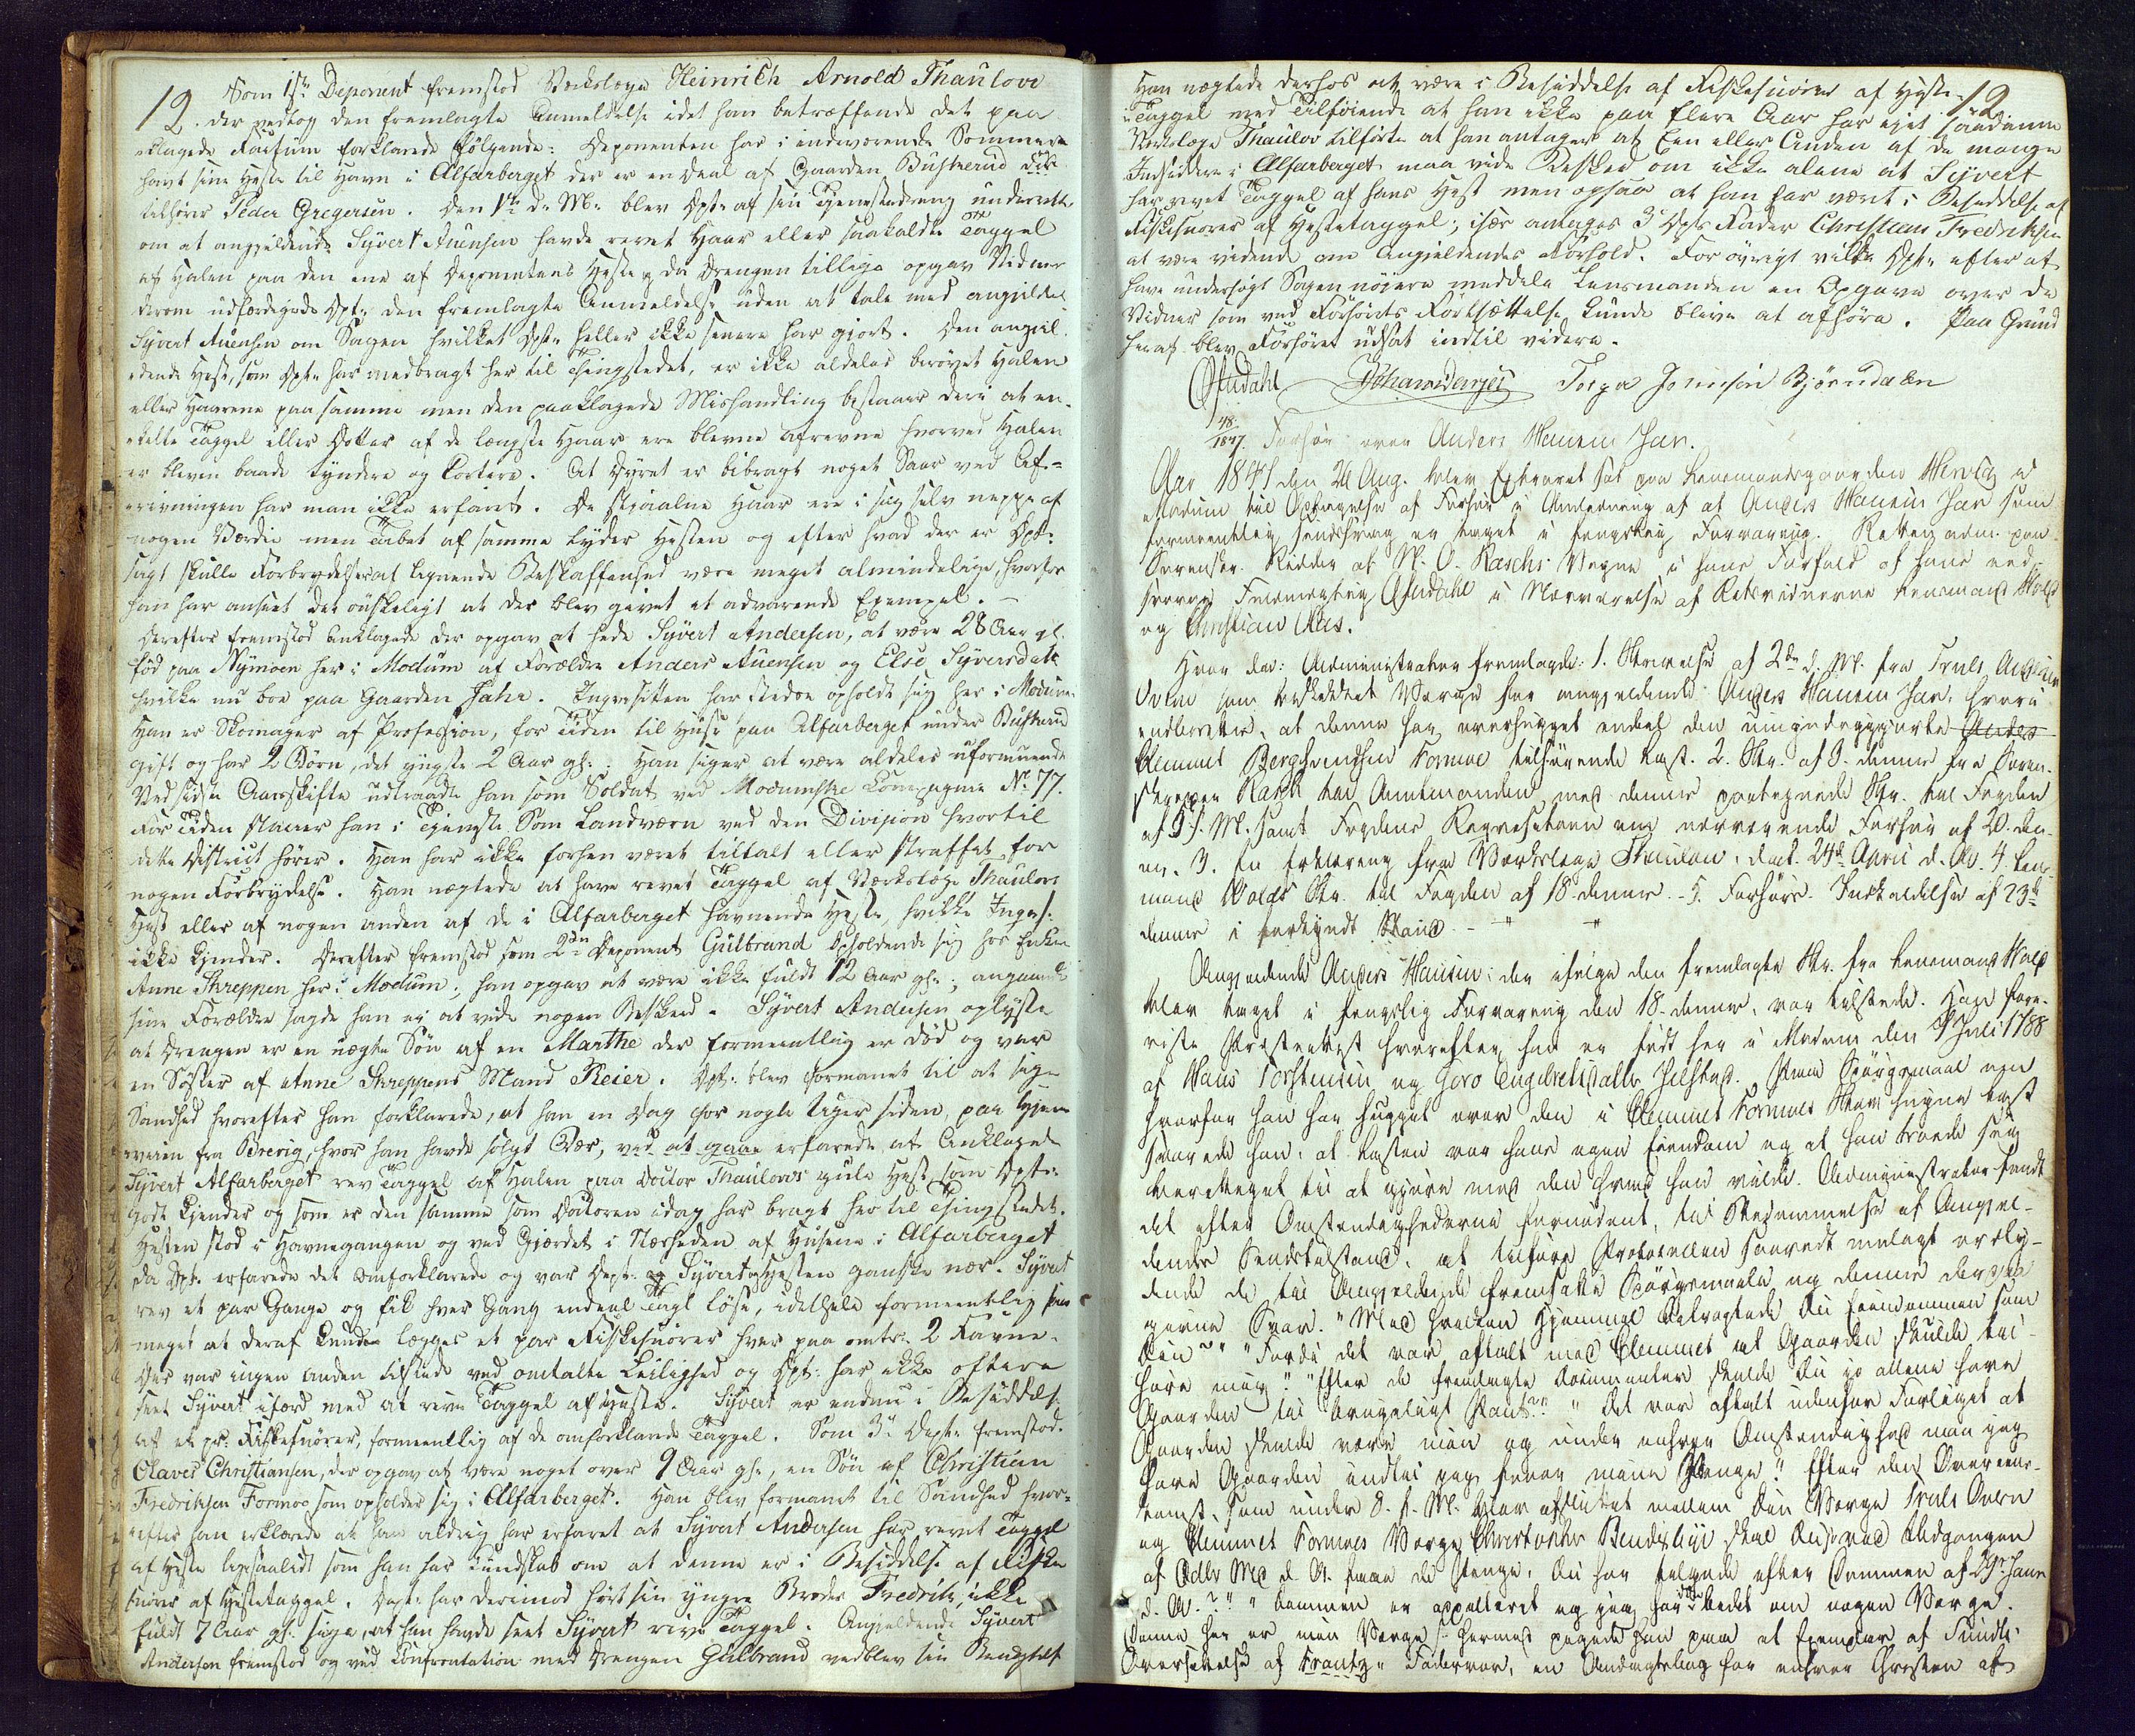 12.
Som 1ste Deponent fremstod Verkslæge Heinrich Arnold Thaulow
der vedtog den fremlagte Anmeldelse idet han betræffende det paa
klagede Factum forklarede følgende: Deponenten har i indeværende Sommer
havt sine Heste til Havn i Alfarberget der er en Deel af Gaarden Buskerud der
tilhører Peder Gregersen. Den 1ste d. M. blev Dpt. af sin Tjenestedreng underrettet
om at angjeldende Syvert Auensen havde revet Haar eller saakaldte Taggel
af Halen paa den ene af Deponentens Heste og da Drengen tillige opgav Vidner
derom udfærdigede Dpt. den fremlagte Anmeldelse uden at tale med angjeldende
Syvert Auensen om Sagen hvilket Dpt. heller ikke senere har gjort. Den angjel-
dende Hest, som Dpt. har medbragt her til Thingstedet, er ikke aldeles berøvet Halen
eller Haarene paa samme men den paaklagede Mishandling bestaaer deri at en-
kelte Taggel eller Dotter af de længste Haar ere blevne afrevne hvorved Halen
er bleven baade tyndere og kortere. At Dyret er bibragt noget Saar ved Af-
rivningen har man ikke erfaret. De stjaalne Haar ere i sig selv neppe af
nogen Værdie men Tabet af samme lyder Hesten og efter hvad der er Dpt.
sagt skulle Forbrydelser af lignende Beskaffenhed være meget almindelige hvorfor
han har anseet det ønskeligt at der blev givet et advarende Exempel. -
Derefter fremstod Anklagede der opgav at hede Syvert Andersen, at være 28 Aar gl.
født paa Nymoen her i Modum af Forældre Anders Auensen og Else Syversdatt.
hvilke nu boe paa Gaarden Jahr. Inqvisiten har stedse opholdt sig her i Modum.
Han er Skomager af Profession, for Tiden til Huse paa Alfarberget under Buskerud
gift og har 2 Børn, det yngste 2 Aar gl. Han siger at være aldeles uformuende
Ved sidste Aarsskifte udtraadte han som Soldat ved Modumske Compagnie No 77.
For Tiden staaer han i Tjeneste som Landværn ved den Division hvortil
dette District hører. Han har ikke forhen været tiltalt eller straffet for
nogen Forbrydelse. Han nægtede at have revet Taggel af Værkslæge Thaulows
Hest eller af nogen anden af de i Alfarberget havnende Heste, hvilke Inqvs.
ikke kjender. Derefter fremstod som 2den Deponent Gulbrand opholdende sig hos Enken
Anne Skreppen her i Modum; han opgav at være ikke fuldt 12 Aar gl.; angaaende
sine Forældre sagde han ei at vide nogen Besked. Syvert Andersen oplyste
at Drengen er en uægte Søn af en Marthe der formeentlig er død og var
en Søster af Anne Skreppens Mand Reier. Dpt. blev formanet til at sige
Sandhed hvorefter han forklarede, at han en Dag for nogle Uger siden paa Hjem-
veien fra Brerig, hvor han havde solgt Bær, ved at gaae erfarede at Anklagede
Syvert Alfarberget rev Taggel af Halen paa Doctor Thaulows gule Hest som Dpt.
godt kjender og som er den samme som Doctoren idag har bragt her til Thingstedet.
Hesten stod i Havnegangen og ved Gjærdet i Nærheden af Husene i Alfarberget
da Dpt. erfarede det omforklarede og var Dept. og Syvert Hesten ganske nær. Syvert
rev et par Gange og fik hver Gang endeel Tagl løse, idethele formeentlig saa
meget at deraf kunde lægges et par Fiskesnører hver paa omtr. 2 Favne.
Der var ingen anden tilstede ved omtalte Leilighed og Dpt. har ikke oftere
seet Syvert ifærd med at rive Taggel af Heste. Syvert er endnu i Besiddelse
af et pr. Fiskesnører, formeentlig af de omforklarede Taggel. Som 3die Dept. fremstod
Olaves Christiansen, der opgav at være noget over 9 Aar gl., en Søn af Christian
Fredriksen Formoe som opholder sig i Alfarberget. Han blev formanet til Sandhed hvor-
efter han erklærede at han aldrig har erfaret at Syvert Andersen har revet Taggel
af Heste ligesaalidt som han har Kundskab om at denne er i Besiddelse af Fiske
snører af Hestetaggel. Dept. har derimod hørt sin yngre Broder Fredrik, ikke
fuldt 7 Aar gl. sige, at han havde seet Syvert rive Taggel. Angjeldende Syvert
Andersen fremstod og ved Confrontation med Drengen Gulbrand vedblev sin Benægtelse
12.
Han nægtede derhos at være i Besiddelse af Fiskesnører af Heste-
Taggel med Tilføiende at han ikke paa flere Aar har ejet saadanne
Verkslæge Thaulow tilførte at han antager at Een eller Anden af de mange
Indsiddere i Alfarberget maa vide Besked om ikke alene at Syvert
har revet Taggel af hans Hest men ogsaa at han har været i Besiddelse af
Fiskesnører af Hestetaggel; især antages 3die Dpts. Fader Christian Fredriksen
at være vidende om Angjeldendes Forhold. For øvrigt vilde Dpt. efter at
have undersøgt Sagen nøiere meddele Lensmanden en Opgave over de
Vidner som ved Forhørets Fortsættelse kunde blive at afhøre. Paa Grund
heraf blev Forhøret udsat indtil videre.
Ofstdahl Torger Jonesøn Bjørndalen
48/1847 Forhør over Anders Hansen Jar.
Aar 1847 den 24 Aug. blev Extraret sat paa Lensmandsgaarden Hervig i
Modum til Optagelse af Forhør i Anledning af at Anders Hansen Jar som
formeentlig sindssvag er taget i fængslig Forvaring. Retten adm. paa
Sorenskr. Ridder af N. O. Raschs Vegne i hans Forfald af hans ed-
svorne Fuldmægtig Ofstdahl i Nærværelse af Retsvidnerne Lensmand Wold
og Christian Aas.
Hvor da: Administrator fremlagde: 1. Skrivelse af 2den d. M. fra Truls
Overn som beskikket Værge for angjeldende Anders Hansen Jar, hvori
indberettes, at denne har overhugget endeel den
Clemmet Formoe tilhørende Last. 2. Skr. af 3. dennes fra Soren-
skriver Rasch til Amtmanden med dennes paategnede Skr. til Fogden
af 9 s. M. samt Fogdens Reqvisition om nærværende Forhør af 20. den-
nes. 3. En Erklæring fra Værkslæge Thaulow, dat. 24de April d. A. 4. Lens-
mand Wolds Skr. til Fogden af 18. dennes. - 5. Forhørs-Indkaldelse af 23de
dennes i forkyndt Stand. - " "
Angjeldende Anders Hansen, der ifølge den fremlagte Skr. fra Lensmand Wold
blev taget i fængslig Forvaring den 18. dennes, var tilstede. Han fore-
viste Præsteattest hvorefter han er født her i Modum den 9 Juli 1788
af Hans Torstensen og Goro Engebretsdatter. Paa Spørgsmaal om
hvorfor han har hugget over den i Clemmet Formoes Skov hugne Last
svarede han: at Lasten var hans egen Eiendom og at han troede sig
berettiget til at gjøre med den hvad han vilde. Administrator fandt
det efter Omstændighederne fornødent, til Bedømmelse af Angjel-
dendes Sindstilstand, at tilføre Protocollen saavidt muligt ordly-
dende de til Angjeldende fremsatte Spørgsmaale og dennes derpaa
givne Svar. "Med hvilken Hjemmel betragtede du Eiendommen som
din?" "Fordi det var aftalt med Clemmet at Gaarden skulde til-
høre mig." "Efter de fremlagte Documenter skulde du jo allene have
Gaarden til brugeligt Pant?" "Det var aftalt udenfor Forliget at
Gaarden skulde være min og under enhver Omstændighed maa jeg
have Gaarden indtil jeg faaer mine Penge." Efter den Overeens-
komst, som under 8. f. M. blev afsluttet mellem din Værge Truls Overn
og Clemmet Formoes Værge skal du jo ved Udgangen
af October Md. d. A. faae de Penge, du har tilgode efter Dommen af 29. Janr.
d. A.?" "Dommen er appelleret og jeg har ikke bedet om nogen Værge.
Denne her er min Værge" hermed pegede han paa et Exemplar af
Oversættelse af Frantz' Fadervor, en Andagtsbog for enhver Christen af